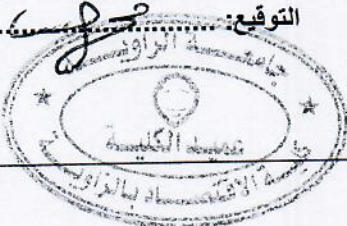 التوقيع: ....................
جامعة الزاوية
عميد الكلية
كلية الاقتصاد بالزاوية